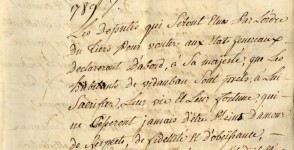 1789
Les deputés qui Seront Elus Par Lordre
du Tiers Pour voter aux Etats generaux
declareront Dabord, a Sa majesté, que Les
habitants de vidauban Sont prets, a Lui
Sacrifier, Leur vie et Leur fortune, qui
ne Cesseront jamais d'être pleins d'amour
de Respects, de fidelité et d'obeissance,